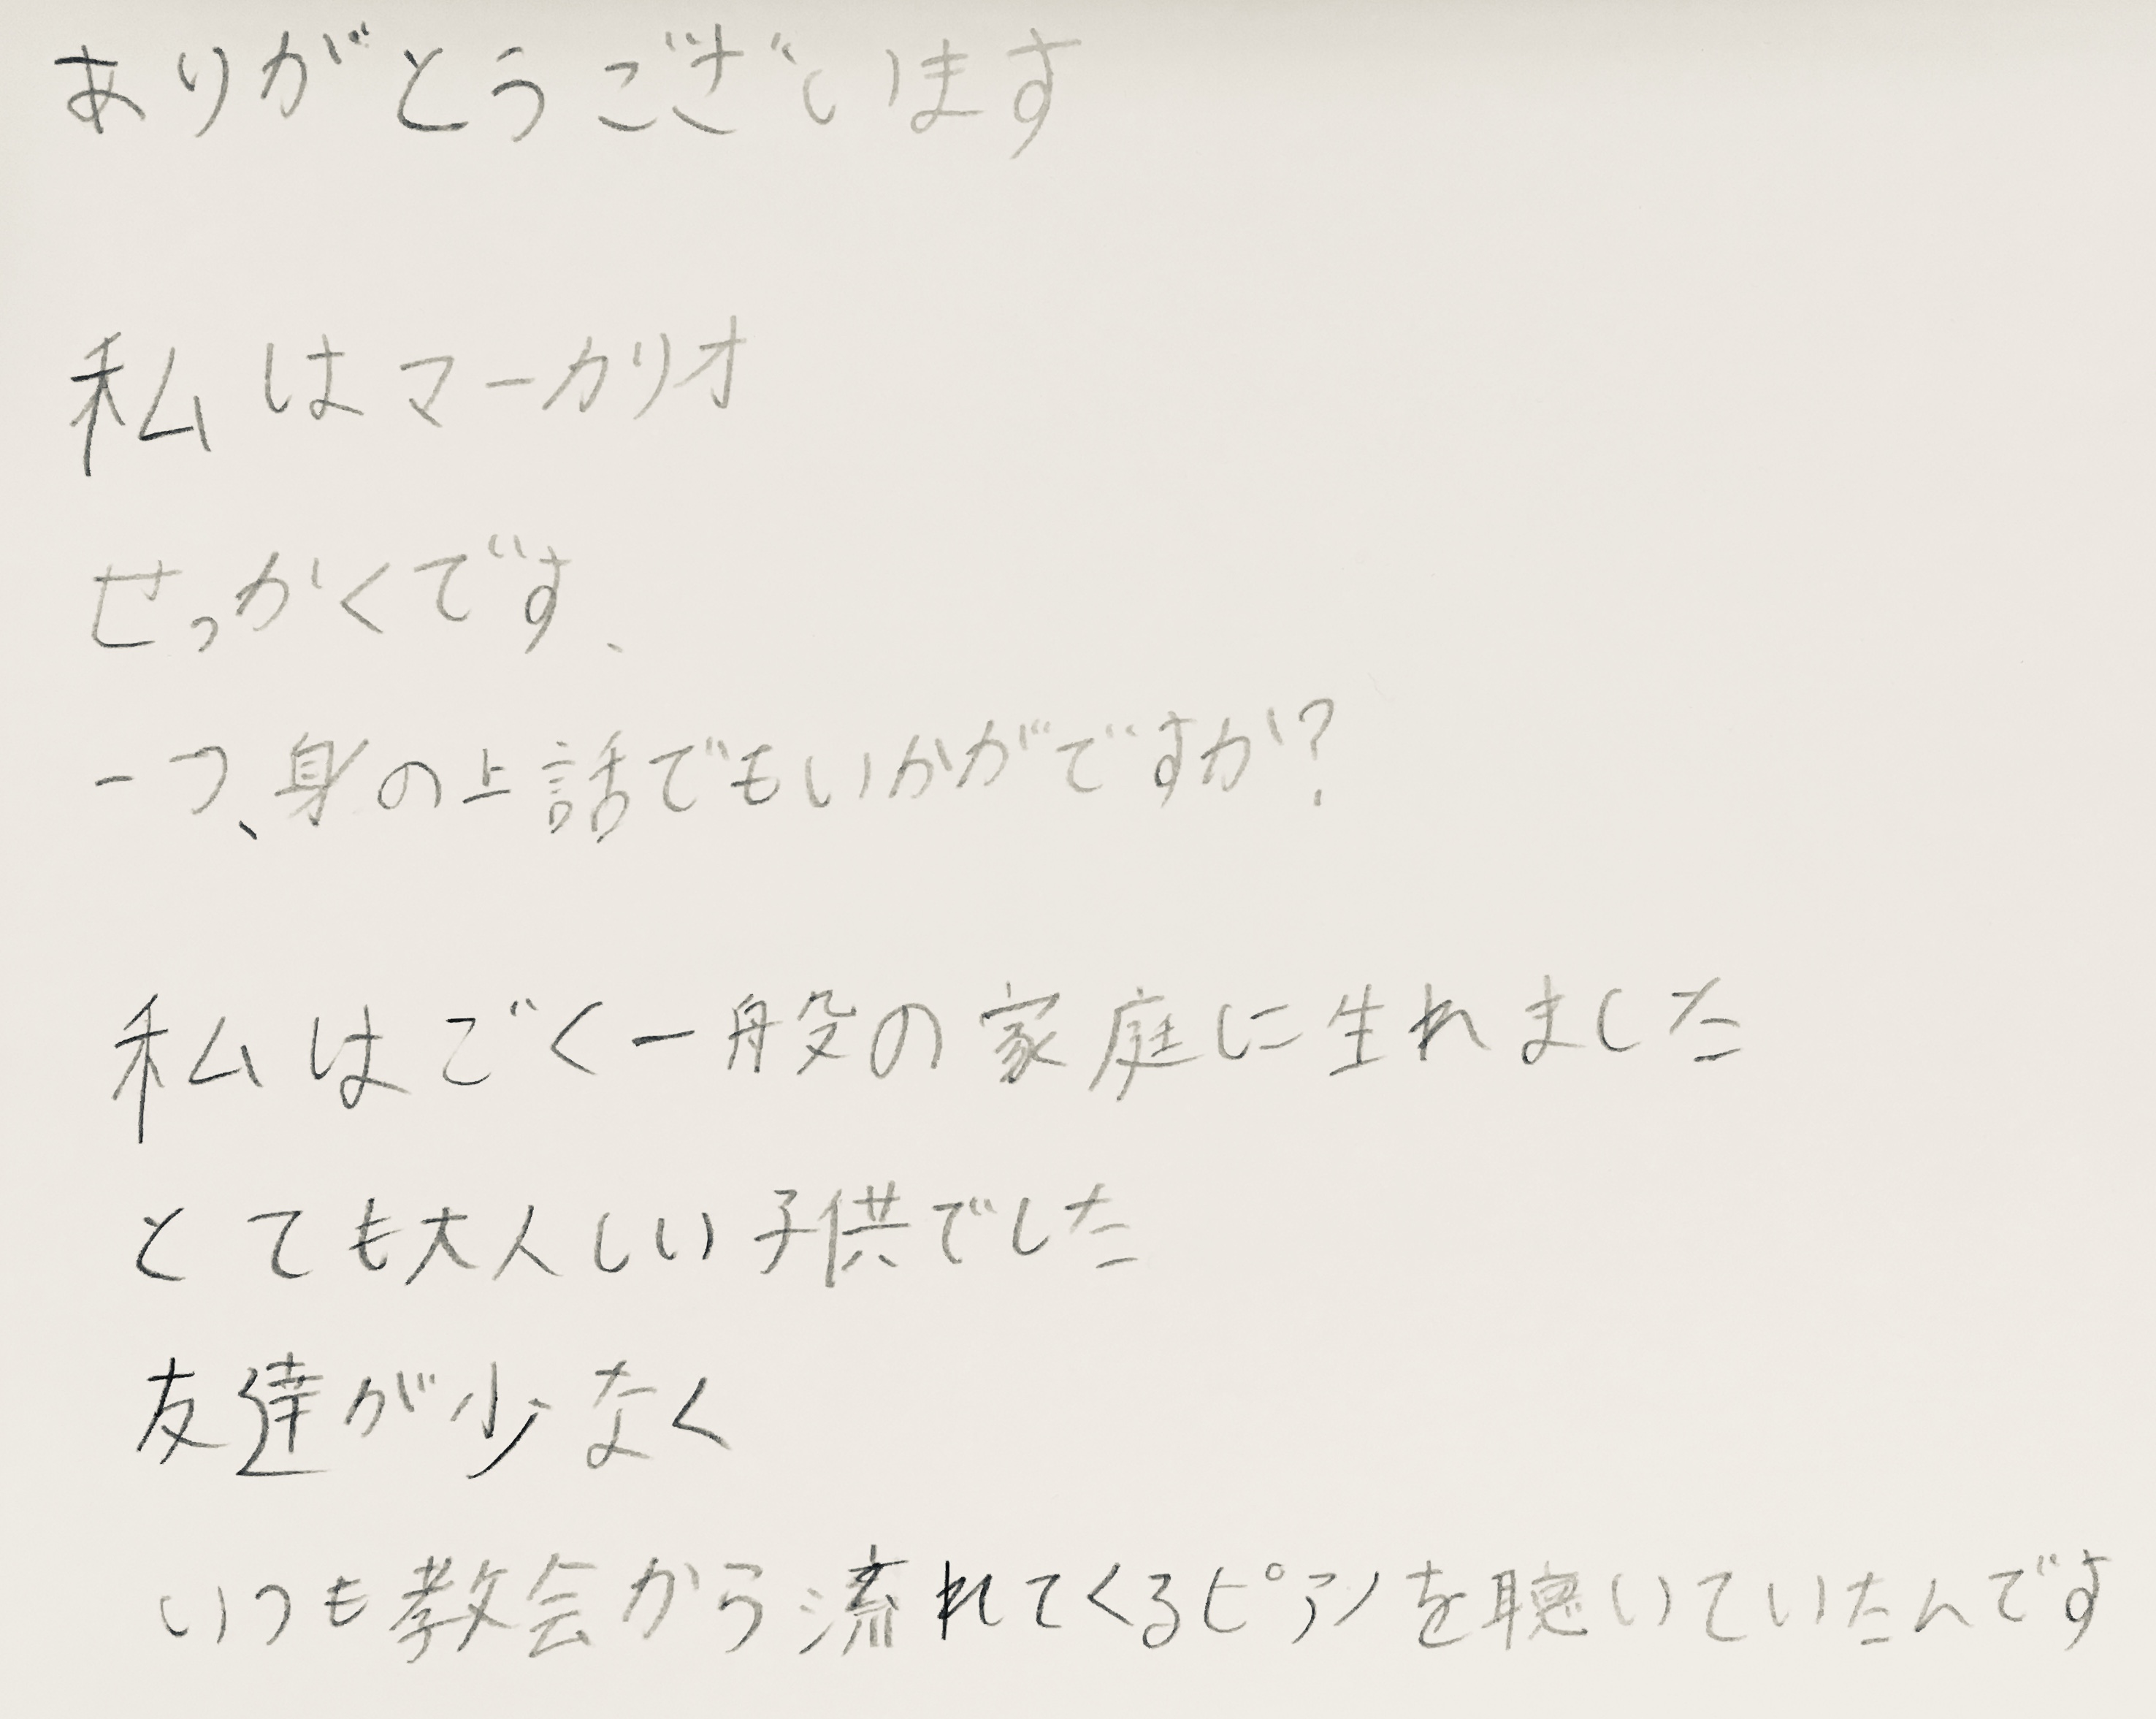 ありがとうございます
私はマーカリオ
せっかくです、
一つ、身の上話でもいかがですか?
私はごく一般の家庭に生れました
とても大人しい子供でした
友達が少なく
いつも教会から流れてくるピアノを聴いていたんです